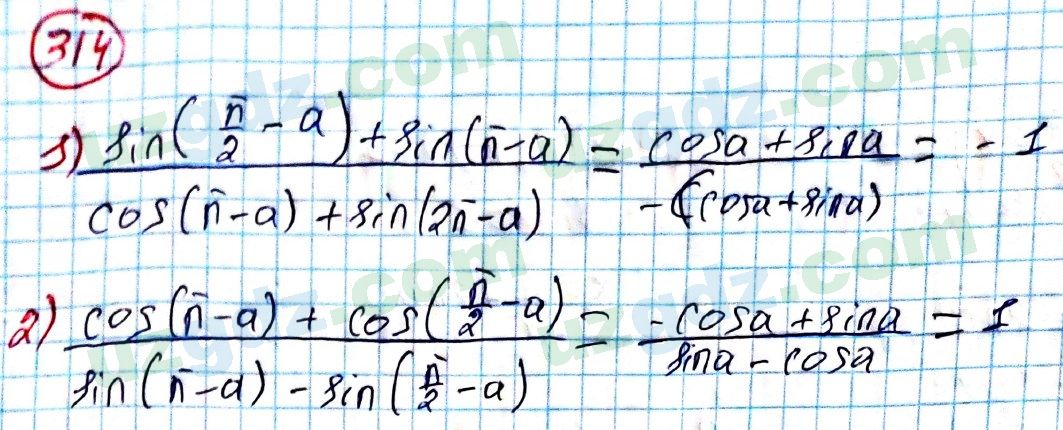 314
1) sin(π/2 - a) + sin(π - a) / cos(π - a) + sin(2π - a) = cosa + sina / -(cosa + sina) = - 1
2) cos(π - a) + cos(π/2 - a) / sin(π - a) - sin(π/2 - a) = -cosa + sina / sina - cosa = 1
uzgdz.com